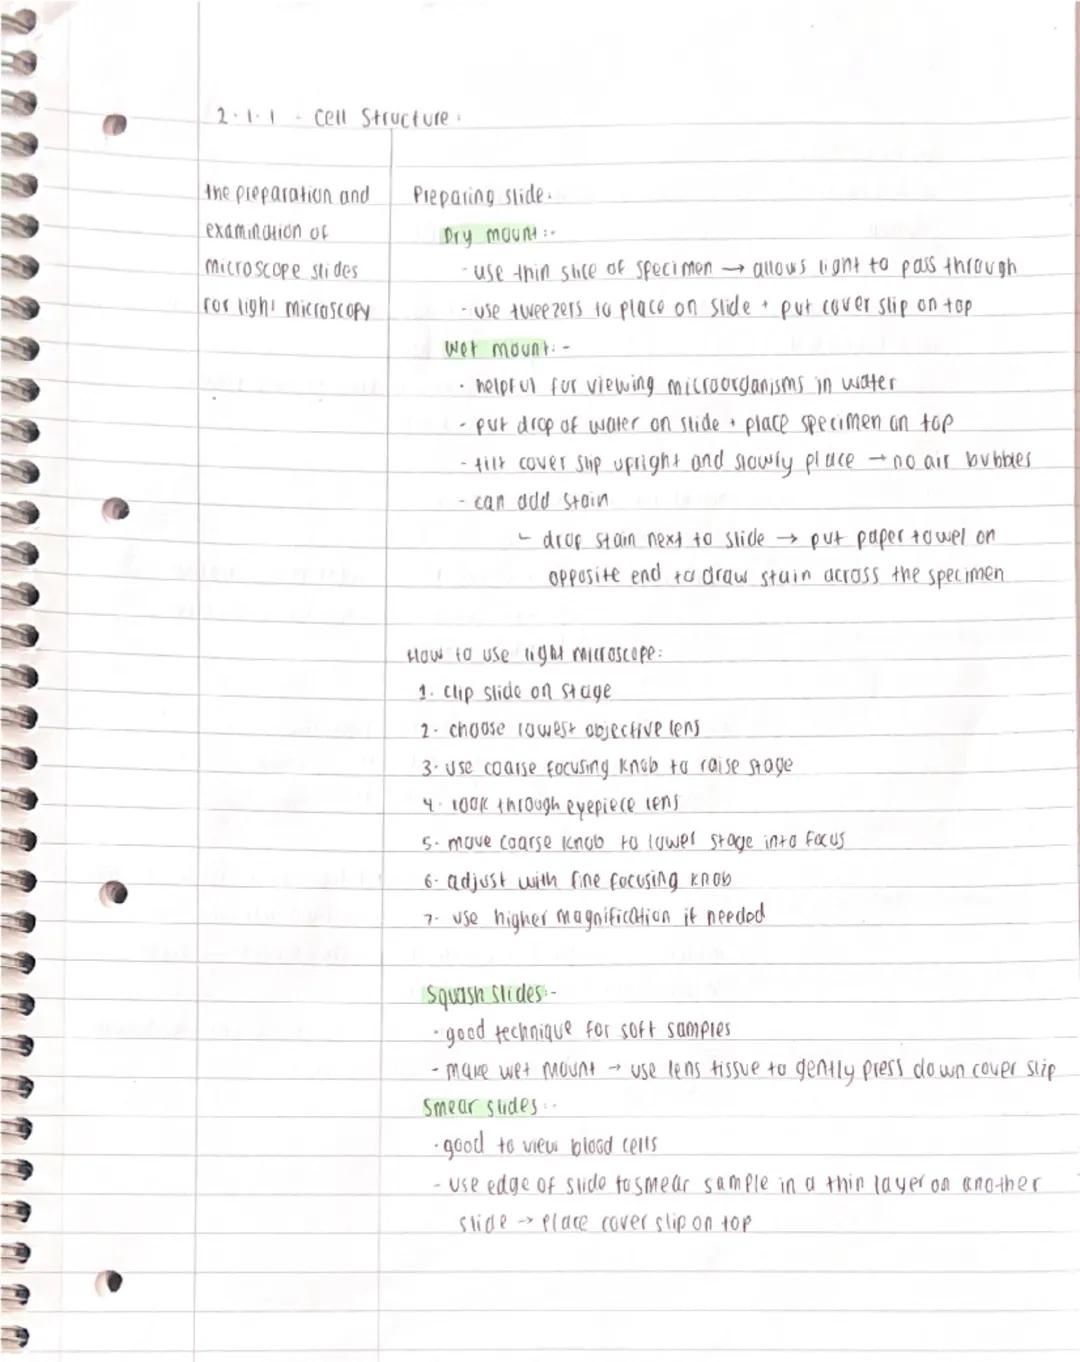 2.1.1 - Cell Structure:
the preparation and
examination of
microscope slides
for light microscopy
Preparing slide:
Dry mount:-
- use thin slice of specimen → allows light to pass through
- use tweezers to place on slide + put cover slip on top
Wet mount:-
- helpful for viewing microorganisms in water
- put drop of water on slide + place specimen on top
- tilt cover slip upright and slowly place → no air bubbles
- can add stain
↳ drop stain next to slide → put paper towel on
opposite end to draw stain across the specimen
How to use light microscope:
1. clip slide on stage
2. choose lowest objective lens
3. use coarse focusing knob to raise stage
4. look through eyepiece lens
5. move coarse knob to lower stage into focus
6. adjust with fine focusing knob
7. use higher magnification if needed
Squash slides:-
- good technique for soft samples
- make wet mount → use lens tissue to gently press down cover slip
Smear slides:-
- good to view blood cells
- use edge of slide to smear sample in a thin layer on another
slide → place cover slip on top